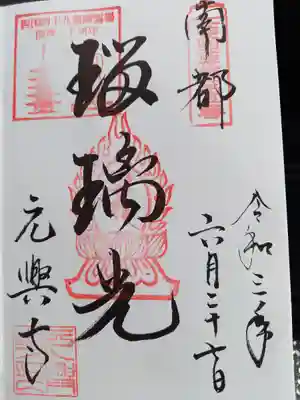 南都
瑠璃光
元興寺
令和三年
六月二十七日